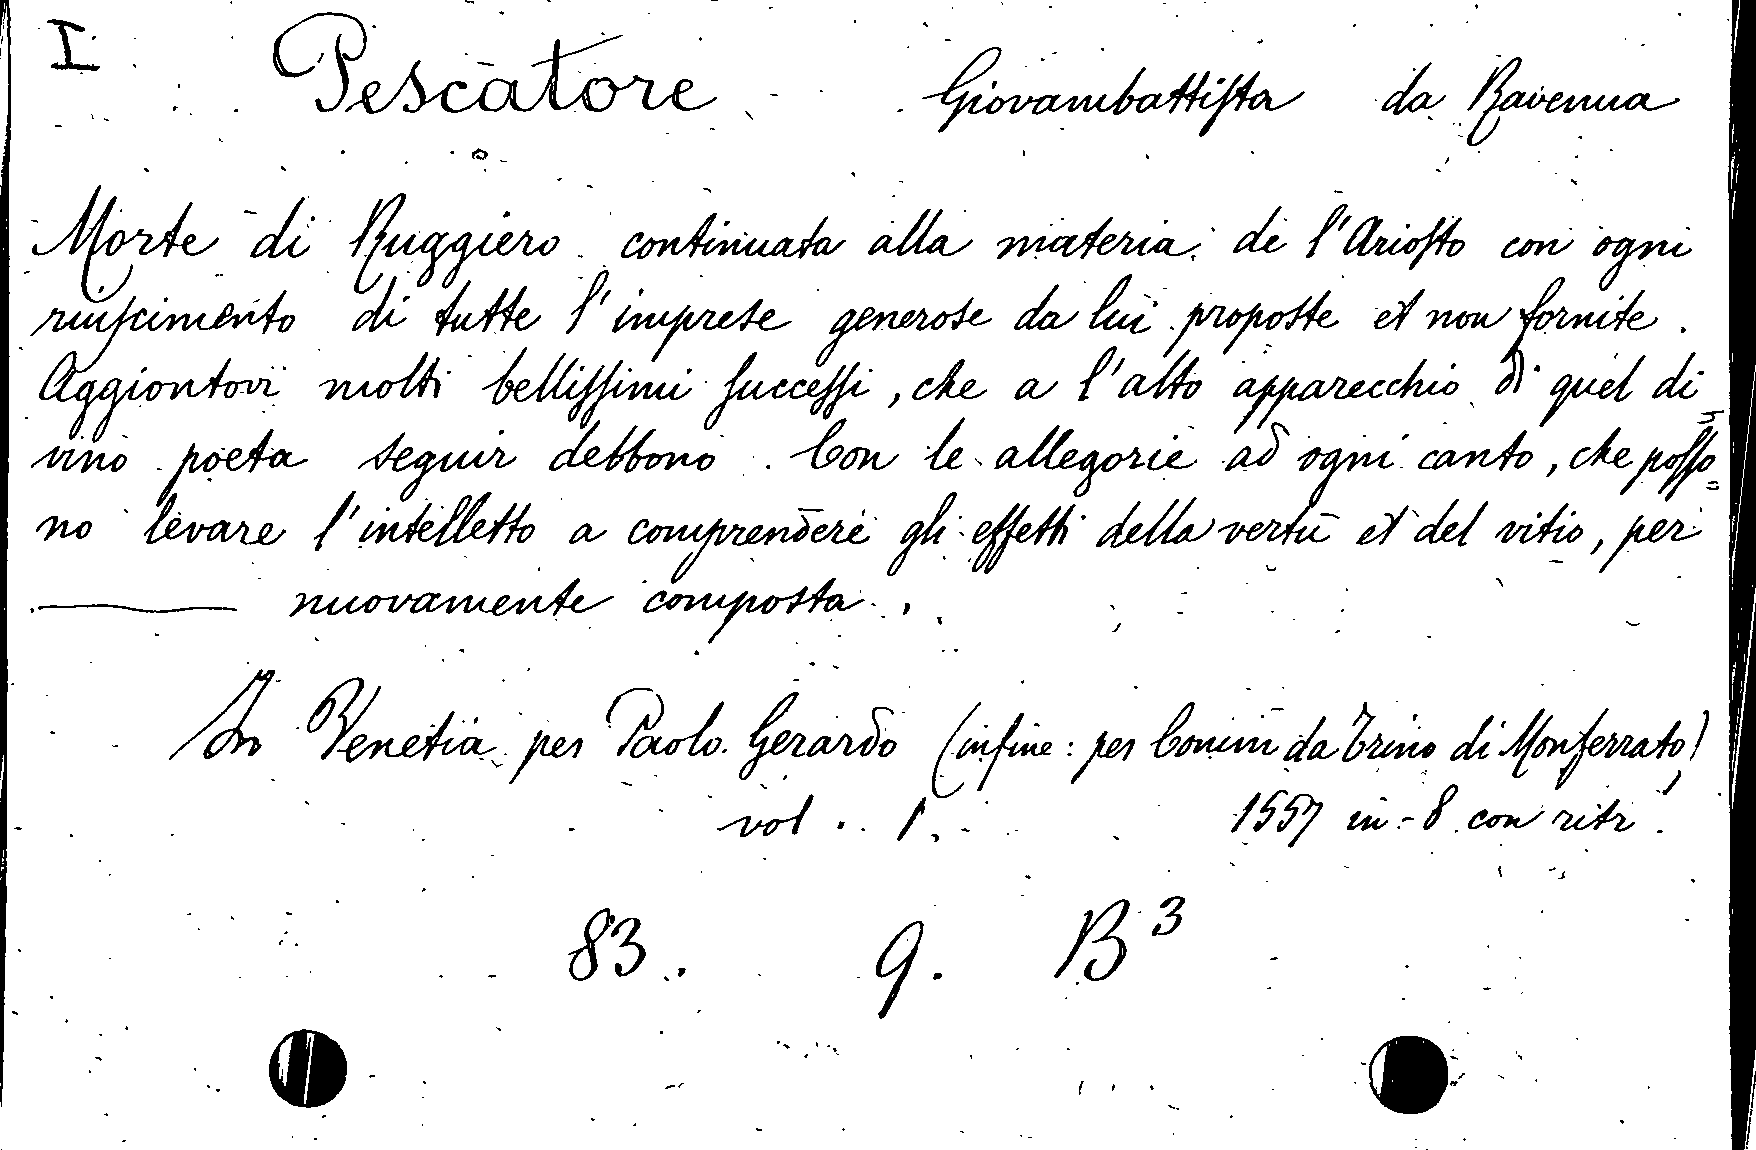 I
Pescatore Giovambattista da Ravenna
Morte di Ruggiero continuata alla materia de l'Ariosto con ogni
riuscimento di tutte l'imprese generose da lui proposte et non fornite.
Aggiontovi molti bellissimi successi, che a l'alto apparecchio di quel di=
vino poeta seguir debbono. Con le allegorie ad ogni canto, che posso=
no levare l'intelletto a comprendere gli effetti della vertù et del vitio, per
——— nuovamente composta.
In Venetia per Paolo Gerardo (infine: per Comin da Trino di Monferrato)
vol. 1. 1557 in-8 con ritr.
83. 9. B³